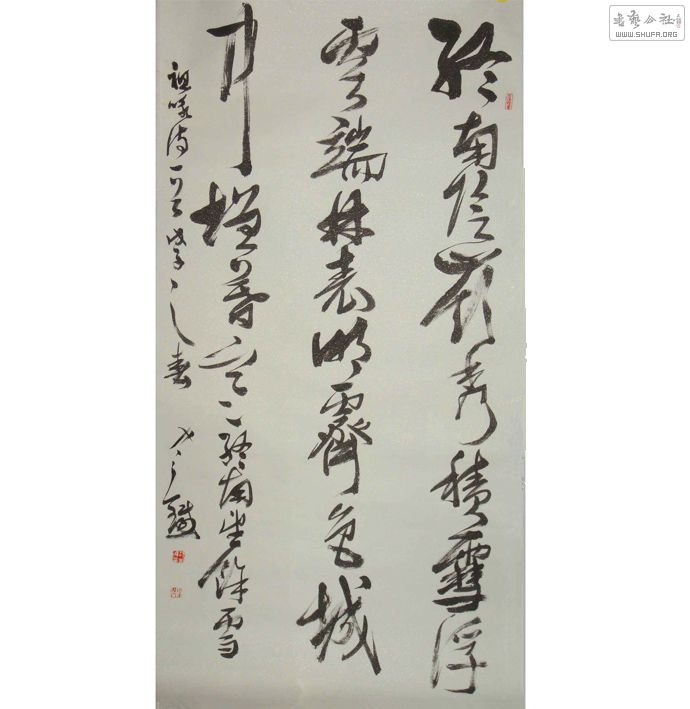 终南阴岭秀积雪浮
云端林表明霁色城
中增暮寒 终南望余雪
祖咏诗一首 之春
书艺公社
WWW.SHUFA.ORG